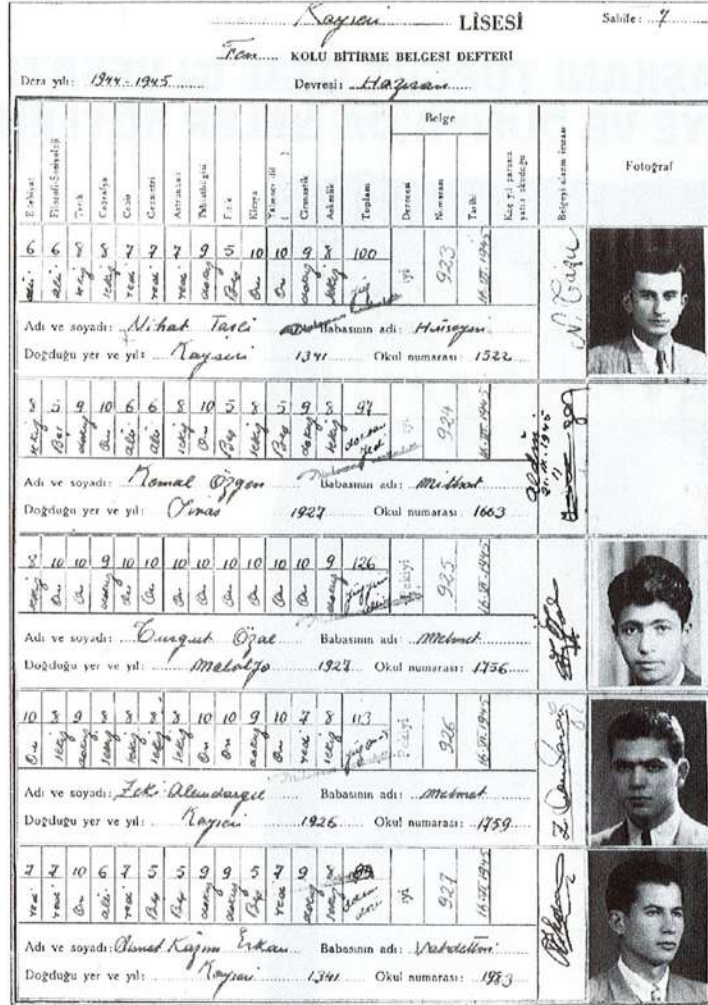 Kayseri LİSESİ Sahife: 7
Fen KOLU BİTİRME BELGESİ DEFTERİ
Ders yılı: 1944-1945 Devresi: Haziran
Belge
Edebiyat Filozofi-Sosyoloji Tarih Coğrafya Cebir Geometri Astronomi Tabiatbilgisi Fizik Kimya Yabancı dil ( ) Cimnastik Askerlik Toplamı Derecesi Numarası Tarihi Kaç yıl parasız yatılı okuduğu Belgeyi alanın imzası Fotoğraf
6 6 8 8 7 7 7 9 5 10 10 9 8 100 iyi 923 16.VI.1945
altı altı sekiz sekiz yedi yedi yedi dokuz Beş On On dokuz sekiz yüz
Adı ve soyadı: Nihat Babasının adı: Hüseyin
Doğduğu yer ve yıl: Kayseri 1341 Okul numarası: 1522
8 5 9 10 6 6 8 10 5 8 5 9 8 97 iyi 924 16.VI.1945
sekiz Beş dokuz On altı altı sekiz On Beş sekiz Beş dokuz sekiz doksan yedi
aldım
Adı ve soyadı: Kemal Özgen Babasının adı: Mithat
Doğduğu yer ve yıl: 1927 Okul numarası: 1663
8 10 10 9 10 10 10 10 10 10 10 10 9 126 Pekiyi 925 16.VI.1945
sekiz On On dokuz On On On On On On On On dokuz
Adı ve soyadı: Turgut Özal Babasının adı: Mehmet
Doğduğu yer ve yıl: Malatya 1927 Okul numarası: 1756
10 8 9 8 8 8 8 10 10 9 10 7 8 113 Pekiyi 926 16.VI.1945
On sekiz dokuz sekiz sekiz sekiz sekiz On On dokuz On yedi sekiz
Adı ve soyadı: Zeki Babasının adı: Mehmet
Doğduğu yer ve yıl: Kayseri 1926 Okul numarası: 1759
7 7 10 6 7 5 5 9 9 5 7 9 8 iyi 927 16.VI.1945
yedi yedi On altı yedi Beş Beş dokuz dokuz Beş yedi dokuz sekiz
Adı ve soyadı: Ahmet Kâzım Erkan Babasının adı: Vahdettin
Doğduğu yer ve yıl: Kayseri 1341 Okul numarası: 1983